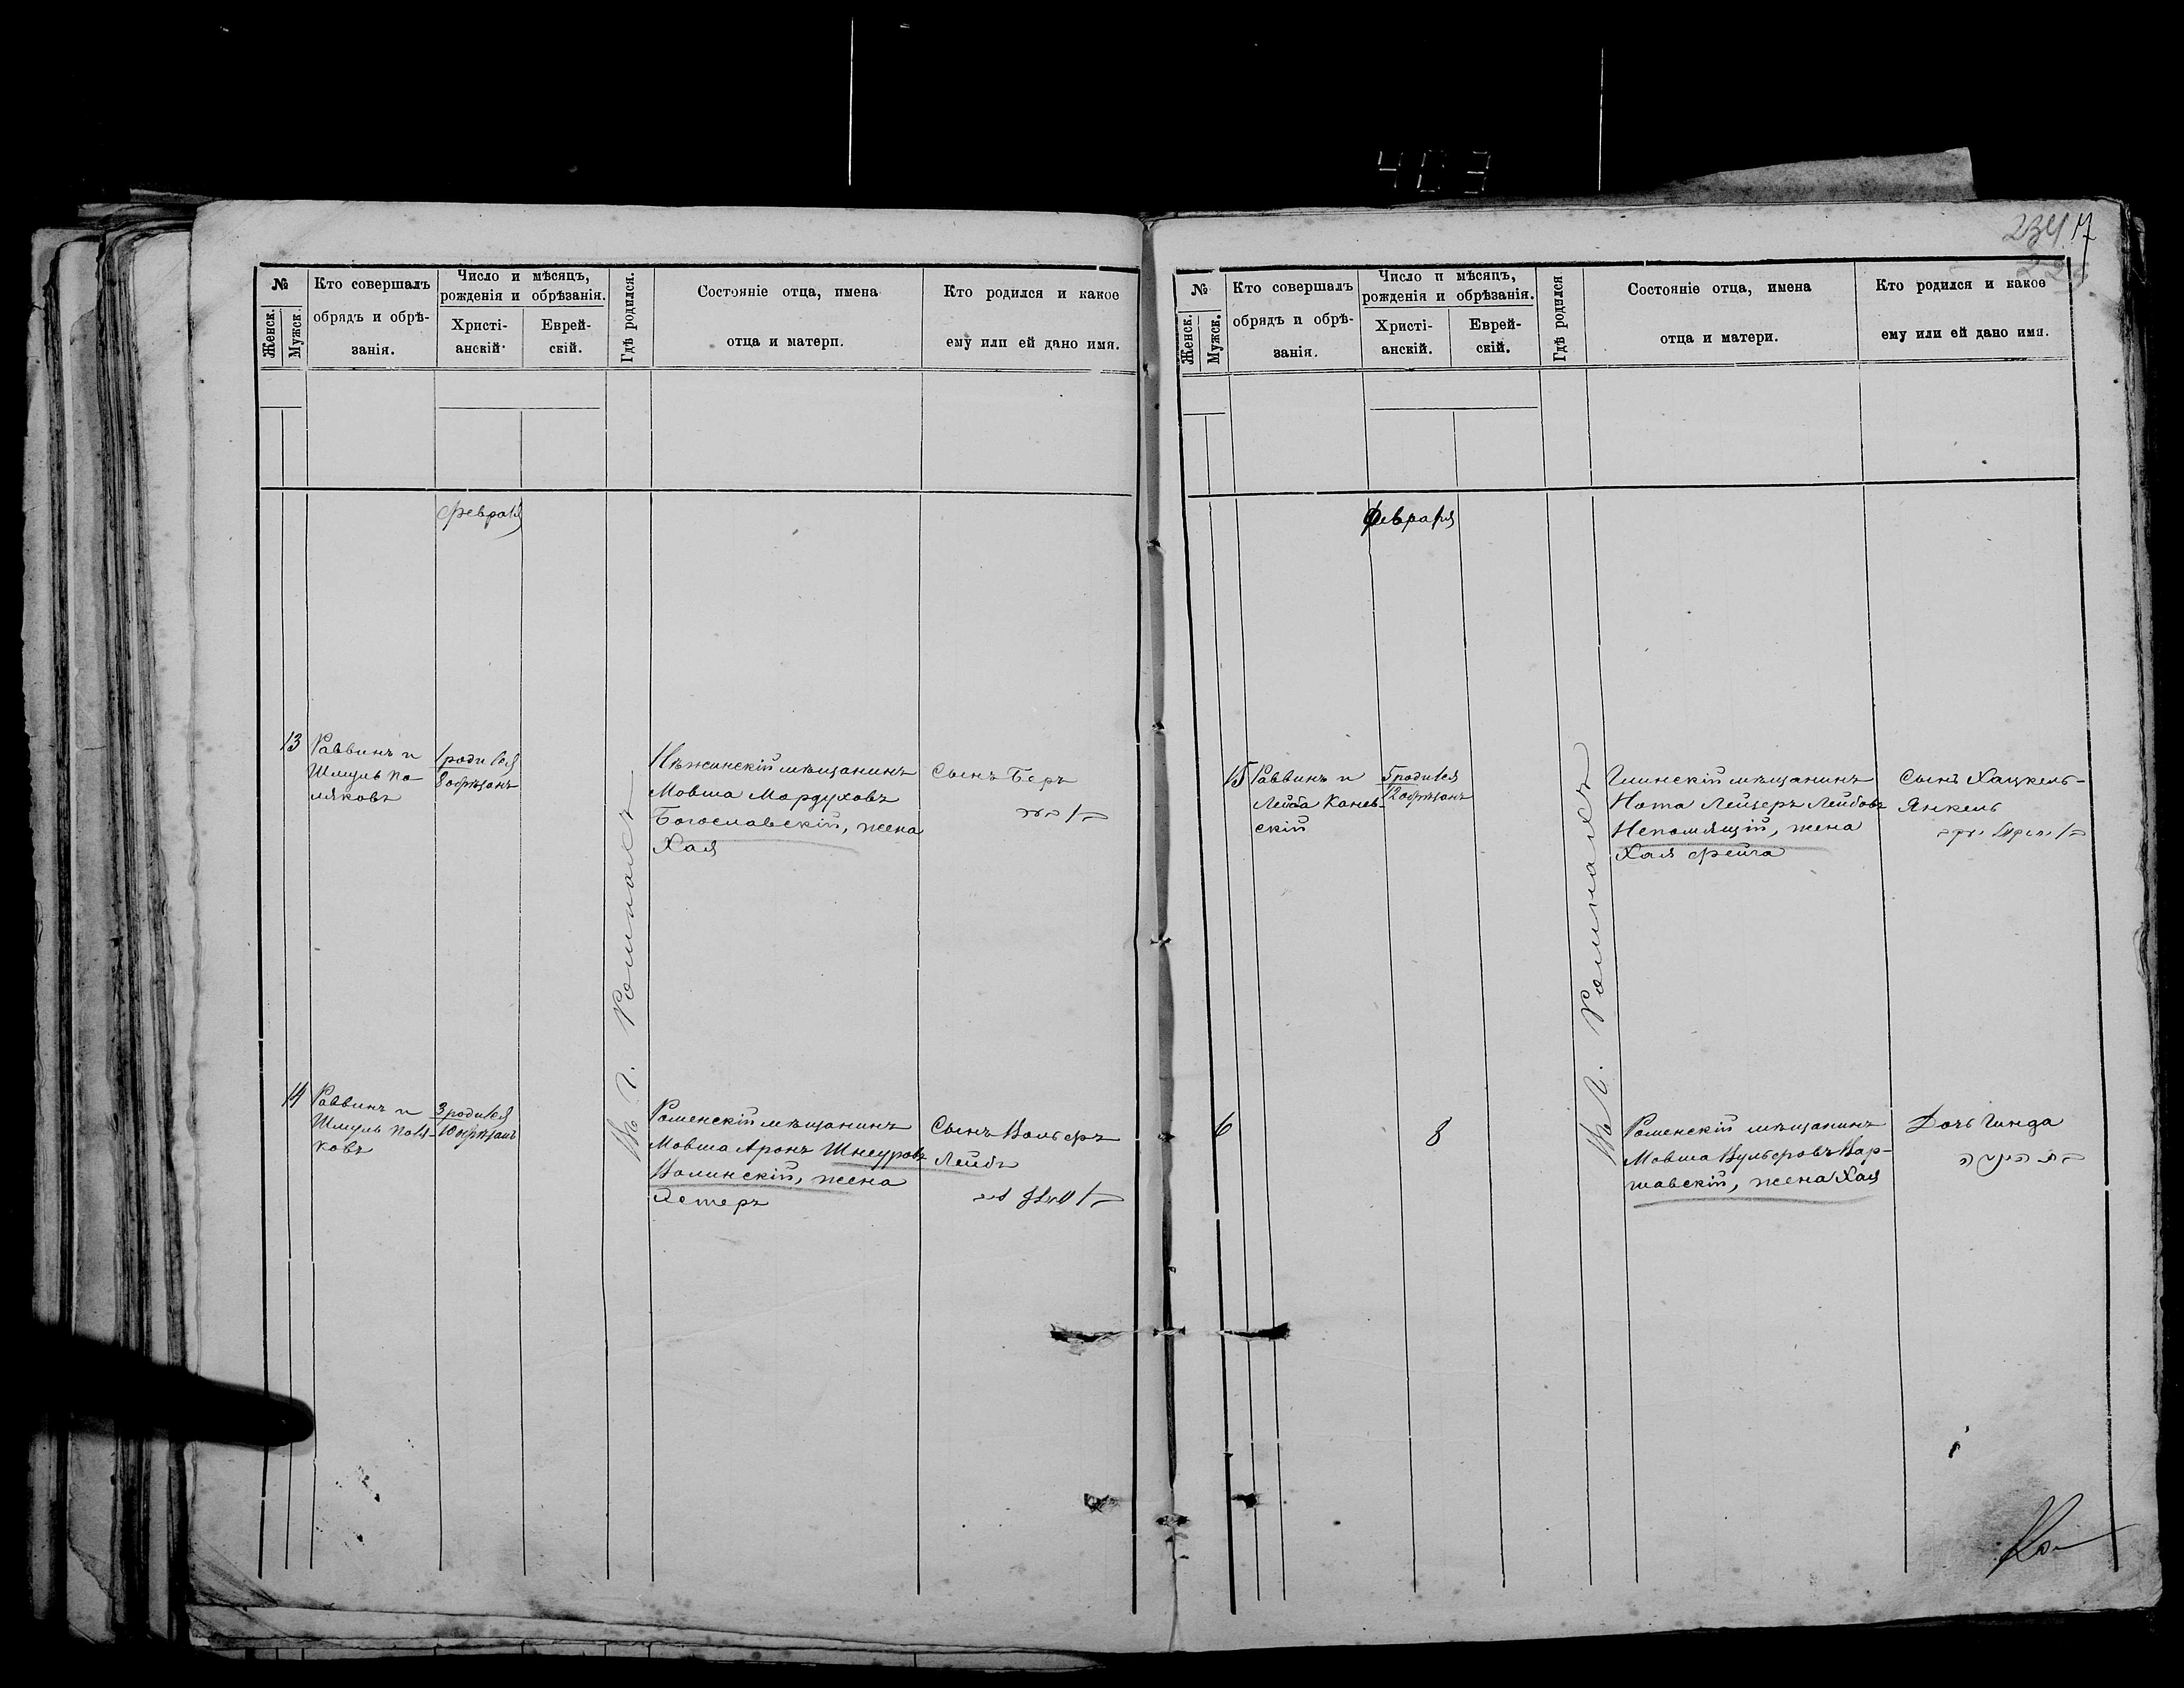 403
234
№
Женск.
Мужск.
Кто совершалъ
обрядъ и обрѣ-
занія.
Число и мѣсяцъ,
рожденія и обрѣзанія.
Христі-
анскій.
Еврей-
скій.
Гдѣ родился.
Состояніе отца, имена
отца и матери.
Кто родился и какое
ему или ей дано имя.
февраля
13
Раввинъ и
Шмуль По-
ляковъ
1 родился
8 обрѣзанъ
Нѣжинскій мѣщанинъ
Мовша Мордуховъ
Богославскій, жена
Хая
Сынъ Беръ
14
Раввинъ и
Шмуль Поля-
ковъ
3 родился
10 обрѣзанъ
Въ г. Ромнахъ
Роменскій мѣщанинъ
Мовша Аронъ Шнеуровъ
Волинскій, жена
Эстеръ
Сынъ Вольфъ
Лейбъ
№
Женск.
Мужск.
Кто совершалъ
обрядъ и обрѣ-
занія.
Число и мѣсяцъ,
рожденія и обрѣзанія.
Христі-
анскій.
Еврей-
скій.
Гдѣ родился
Состояніе отца, имена
отца и матери.
Кто родился и какое
ему или ей дано имя.
февраля
15
Раввинъ и
Лейба Канев-
скій
5 родился
12 обрѣзанъ
Глинскій мѣщанинъ
Нота Лейзеръ Лейбовъ
Непомящій, жена
Хая Фейга
Сынъ Хацкель-
Янкель
6
8
Въ г. Ромнахъ
Роменскій мѣщанинъ
Мовша Вульфовъ Вар-
шавскій, жена Хая
Дочь Гинда